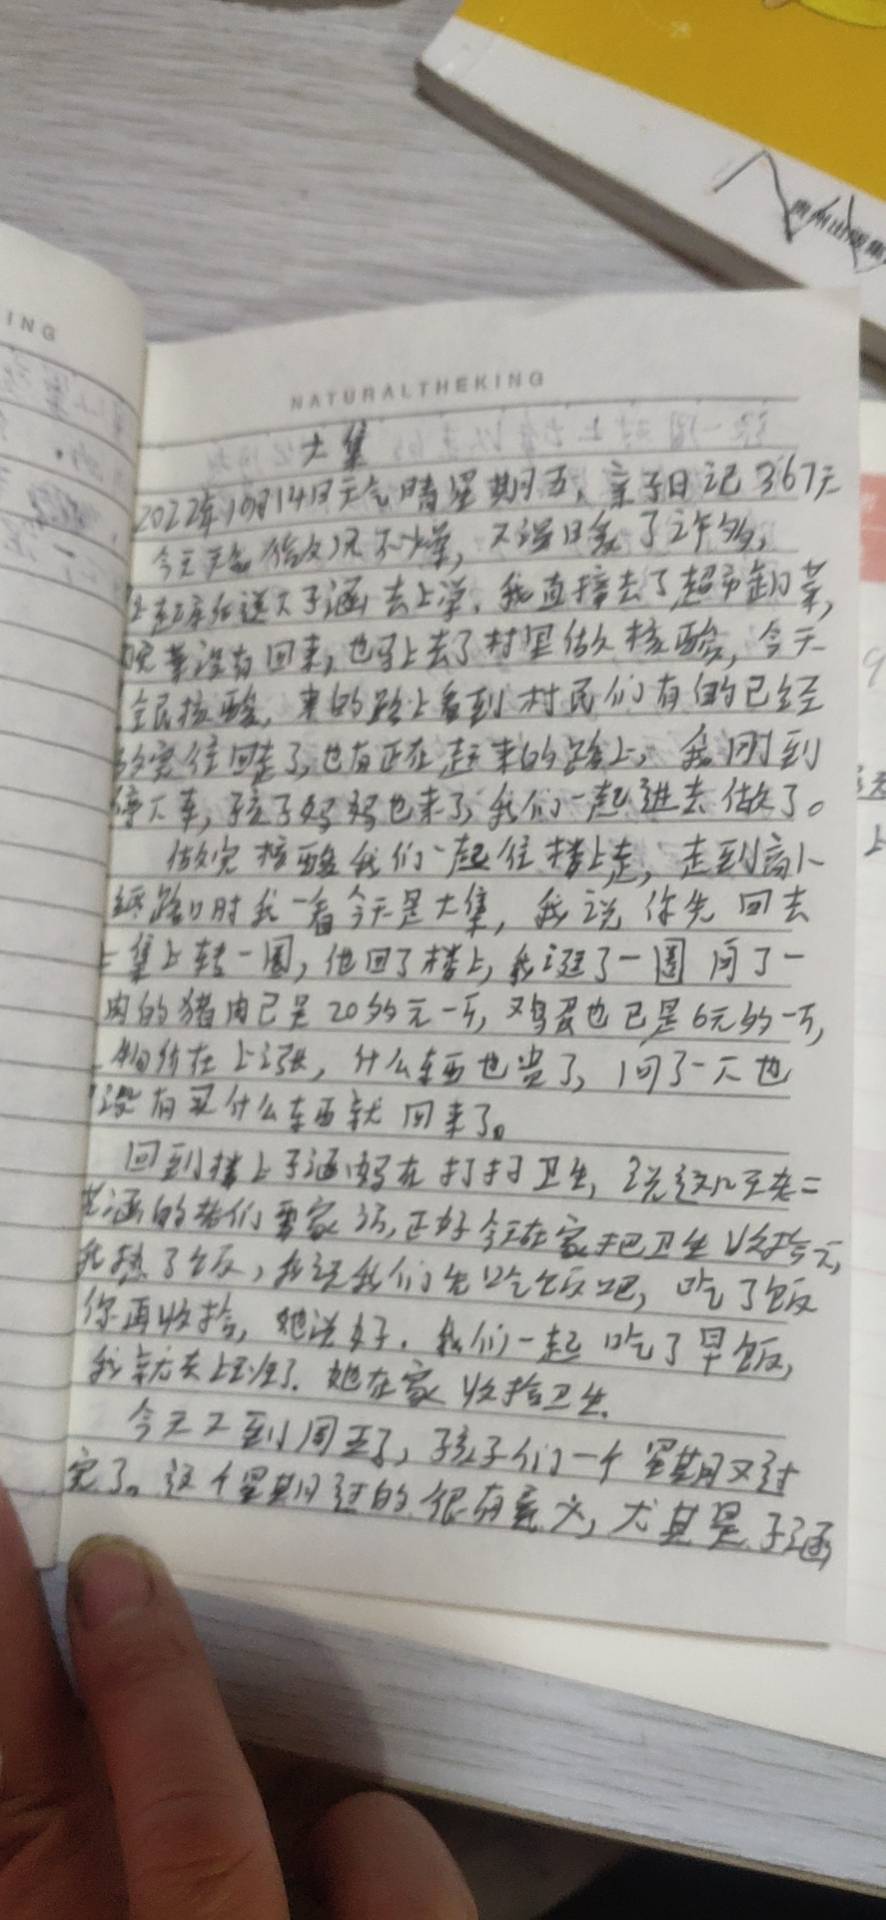 ING
NATURALTHEKING
大集
2022年10月14日天气晴星期五,亲子日记367天
今天天气依次不
送子涵去上学,我直接去了超市卸菜,
完菜没有回来,也马上去了村里做核酸,今天
全民核酸,来的路上看到村民们有的已经
做完往回走了,也有正在赶来的路上,我刚到
停下车,孩子妈妈也来了,我们一起进去做了。
做完核酸我们一起往楼上走,走到高小
路口时我一看今天是大集,我说你先回去
集上转一圈,他回了楼上,我逛了一圈问了一
肉的猪肉已是20多元一斤,鸡蛋也已是6元多一斤,
物价在上涨,什么东西也贵了,问了一下也
没有买什么东西就回来了。
回到楼上子涵妈在打扫卫生,说这几天
涵的老们要家访,正好今天在家把卫生收拾
我热了饭,我说我们先吃饭吧,吃了饭
你再收拾,她说好,我们一起吃了早饭,
我就去上班了,她在家收拾卫生。
今天又到周五了,孩子们一个星期又过
完了。这个星期过的很有意义,尤其是子涵